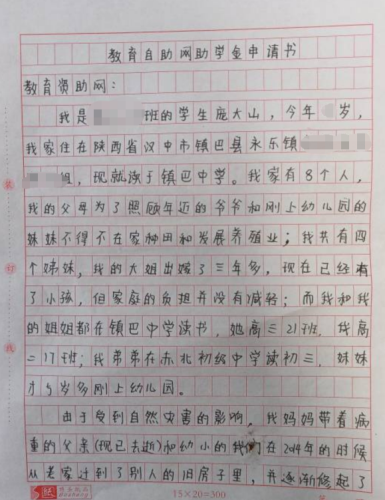 教育自助网助学金申请书
教育资助网：
我是班的学生庞大山，今年岁，
我家住在陕西省汉中市镇巴县永乐镇
组，现就读于镇巴中学。我家有8个人，
我的父母为了照顾年迈的爷爷和刚上幼儿园的
妹妹不得不在家种田和发展养殖业；我共有四
个姊妹，我的大姐出嫁了三年多，现在已经有
了小孩，但家庭的负担并没有减轻；而我和我
的姐姐都在镇巴中学读书，她高三21班，我高
二17班；我弟弟在赤北初级中学读初三，妹妹
才5岁多刚上幼儿园。
由于受到自然灾害的影响，我妈妈带着病
重的父亲(现已去逝)和幼小的我们在2014年的时候
从老家迁到了别人的旧房子里，并逐渐修起了
15×20=300